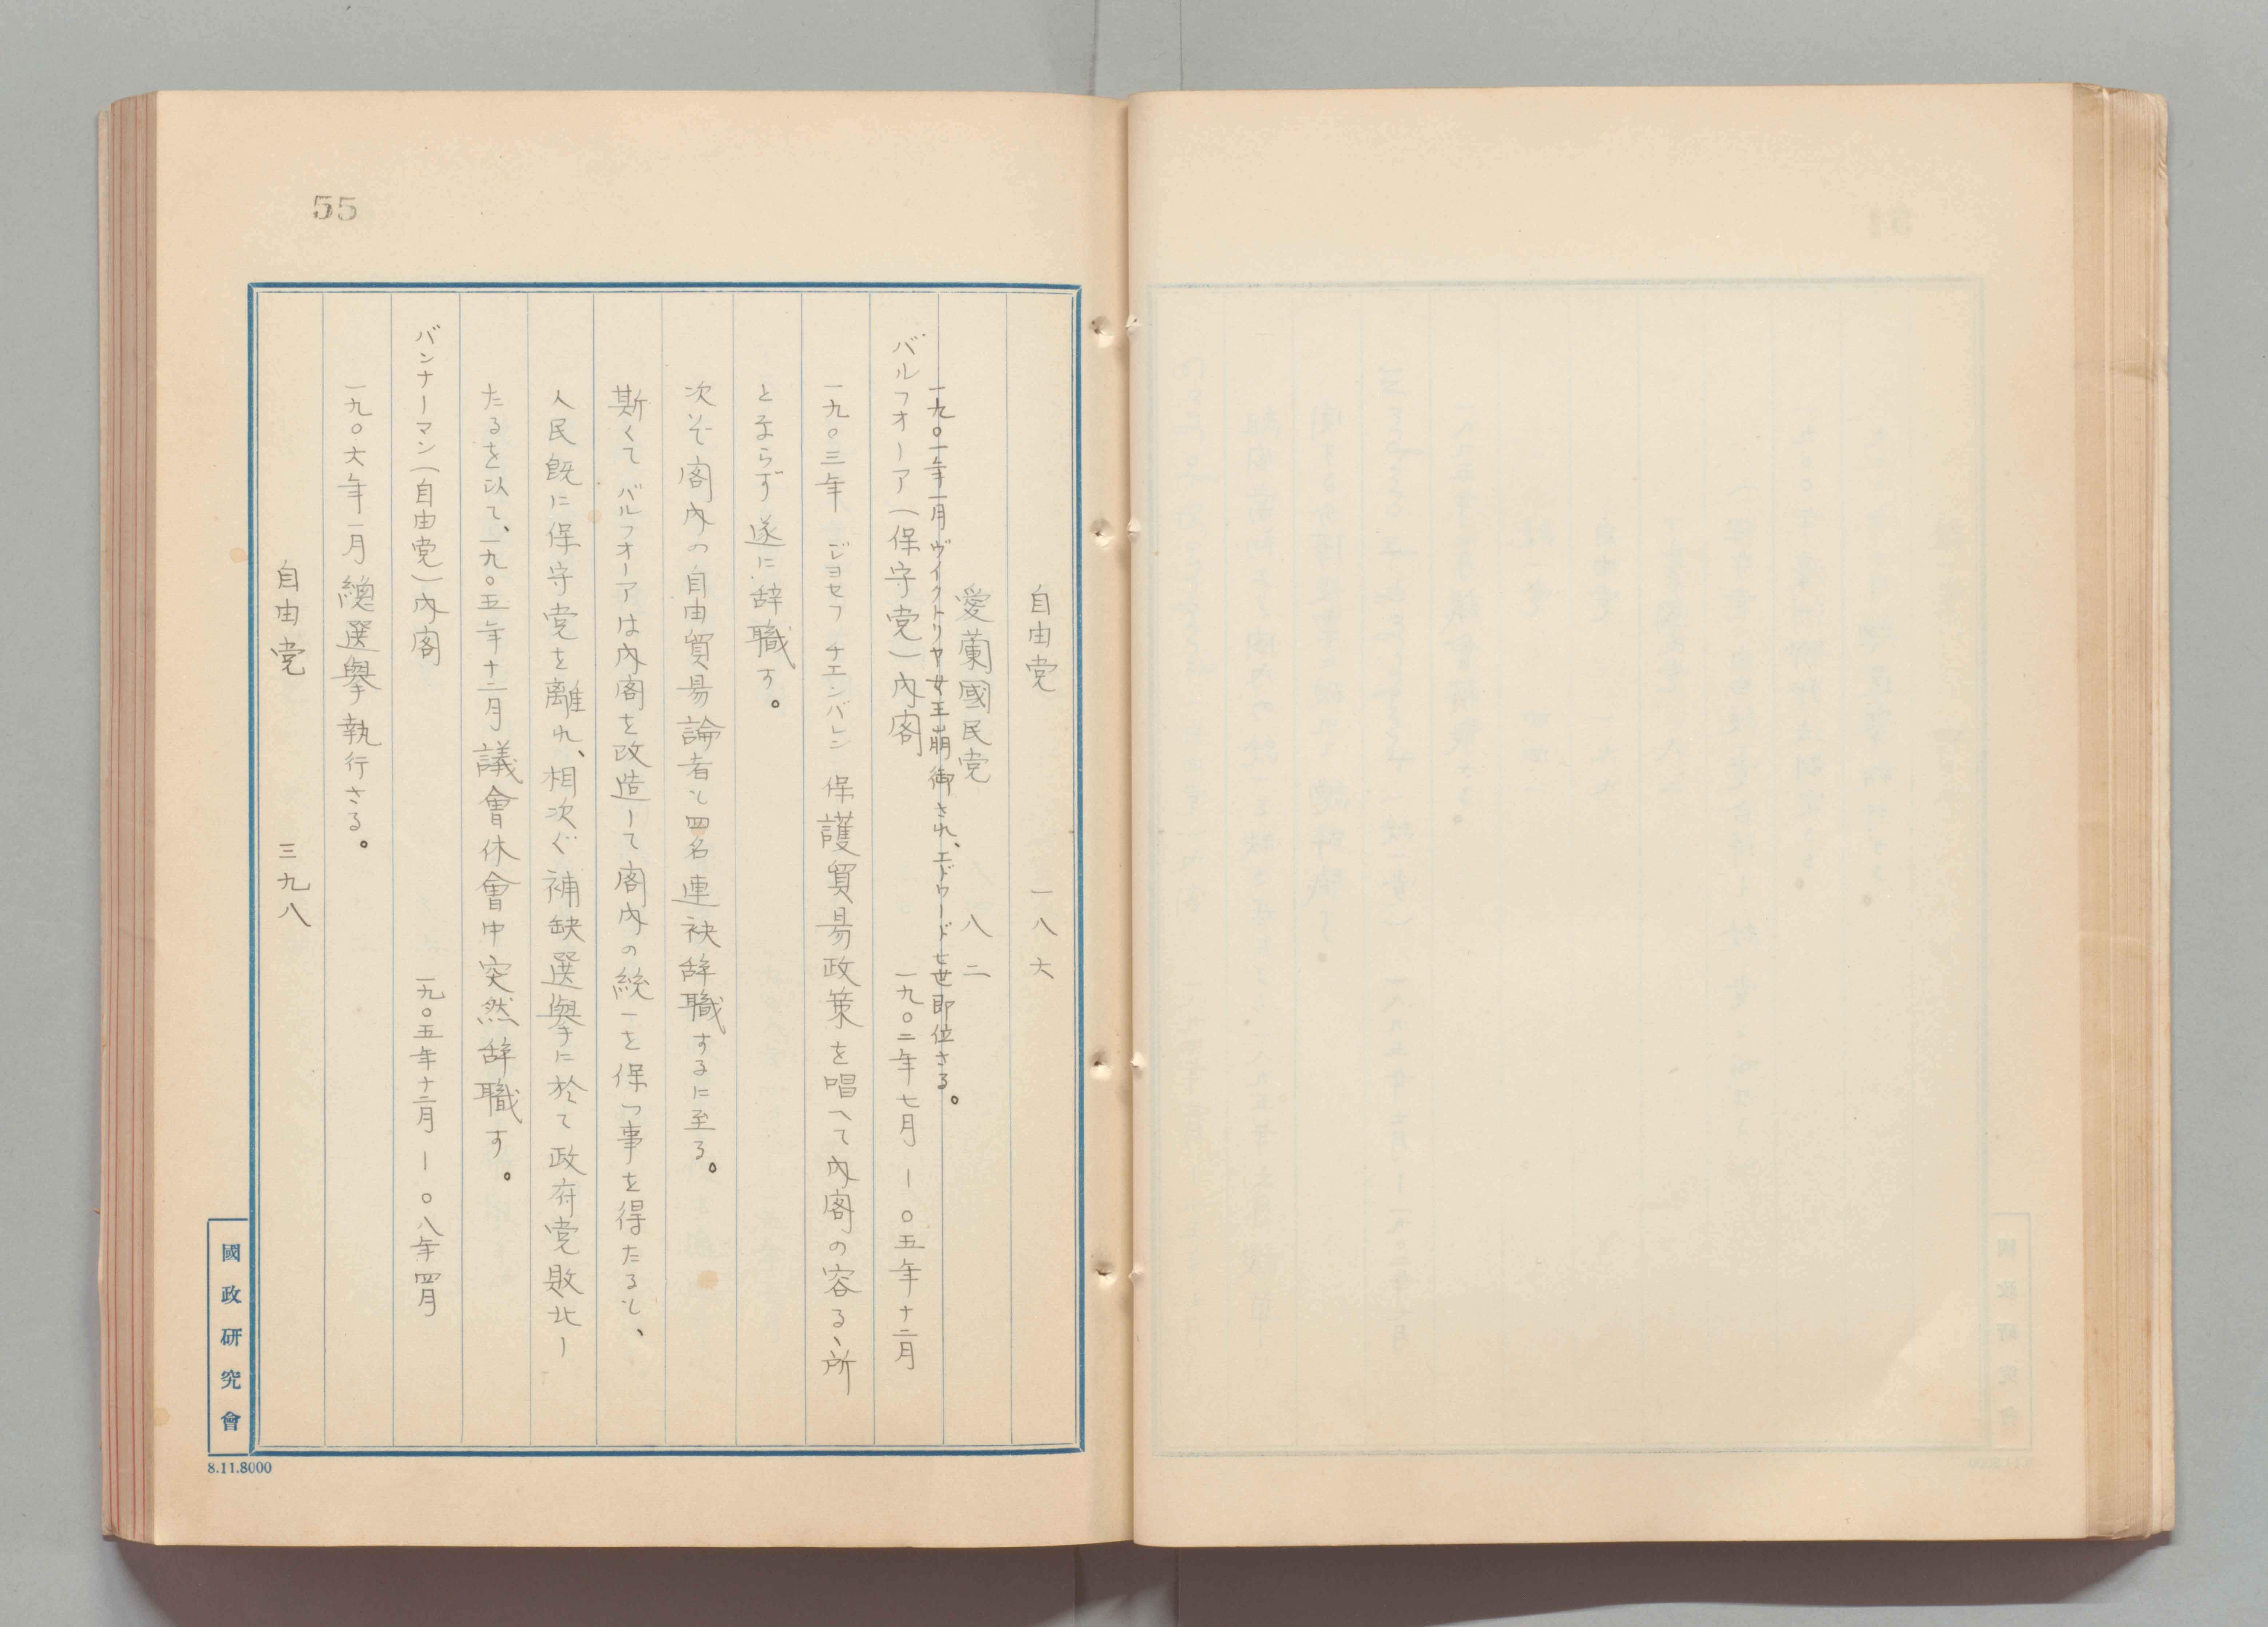 55
自由党 一八六
愛蘭國民党 八二
一九〇一年一月ヴィクトリヤ女王崩御され、エドワード七世即位さる。
バルフォーア(保守党)内閣 一九〇二年七月ー〇五年十二月
一九〇三年 ジョセフ チエンバレン 保護貿易政策を唱へて内閣の容るゝ所
とならず遂に辞職す。
次で閣内の自由貿易論者も四名連袂辞職するに至る。
斯くてバルフォーアは内閣を改造して閣内の統一を保つ事を得たるも、
人民既に保守党を離れ、相次ぐ補缺選擧に於て政府党敗北し
たるを以て、一九〇五年十二月議會休會中突然辞職す。
バンナーマン(自由党)内閣 一九〇五年十二月ー〇八年四月
一九〇六年一月總選擧執行さる。
自由党 三九八
國政研究會
8.11.8000